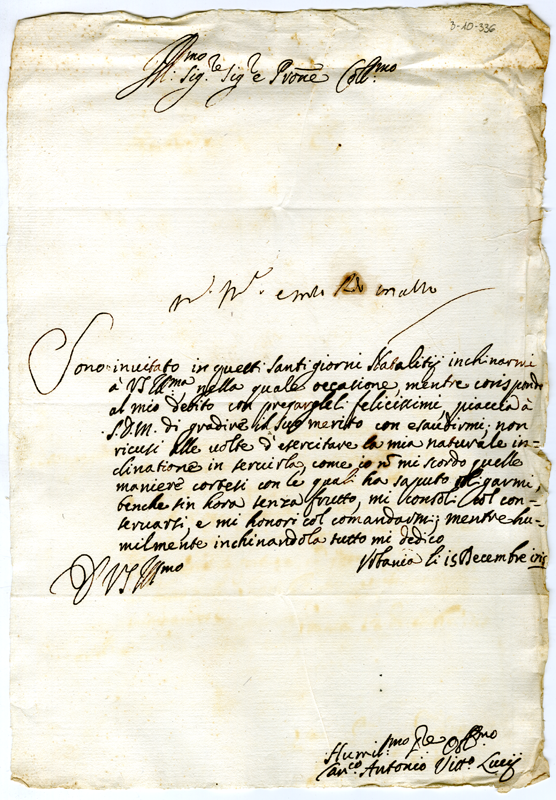 3-10-336
Ill:mo Sig:re Sig:re e Prone Coll:mo
Sono invitato in questi santi giorni Natalitij inchinarmi
à VS Ill:ma nella quale occasione mentre corrispondo
al mio debito con pregargleli felicissimi, piaccia à
S.D.M. di gradire il suo merito con esaudirmi; non
ricusi alle volte d'esercitare la mia naturale in-
clinatione in servirla, come io nõ mi scordo quelle
maniere cortesi con le quali ha saputo obligarmi,
benche sin hora senza frutto, mi consoli col con-
servarsi, e mi honori col comandarmi; mentre hu-
milmente inchinandola tutto mi dedico
D VS Ill:mo
li 15 Decembre
Humil:mo
Can:co Antonio Vitt:o Lucij